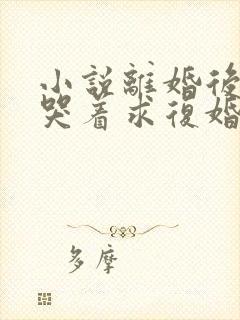 小説離婚後
哭着求復婚
多摩